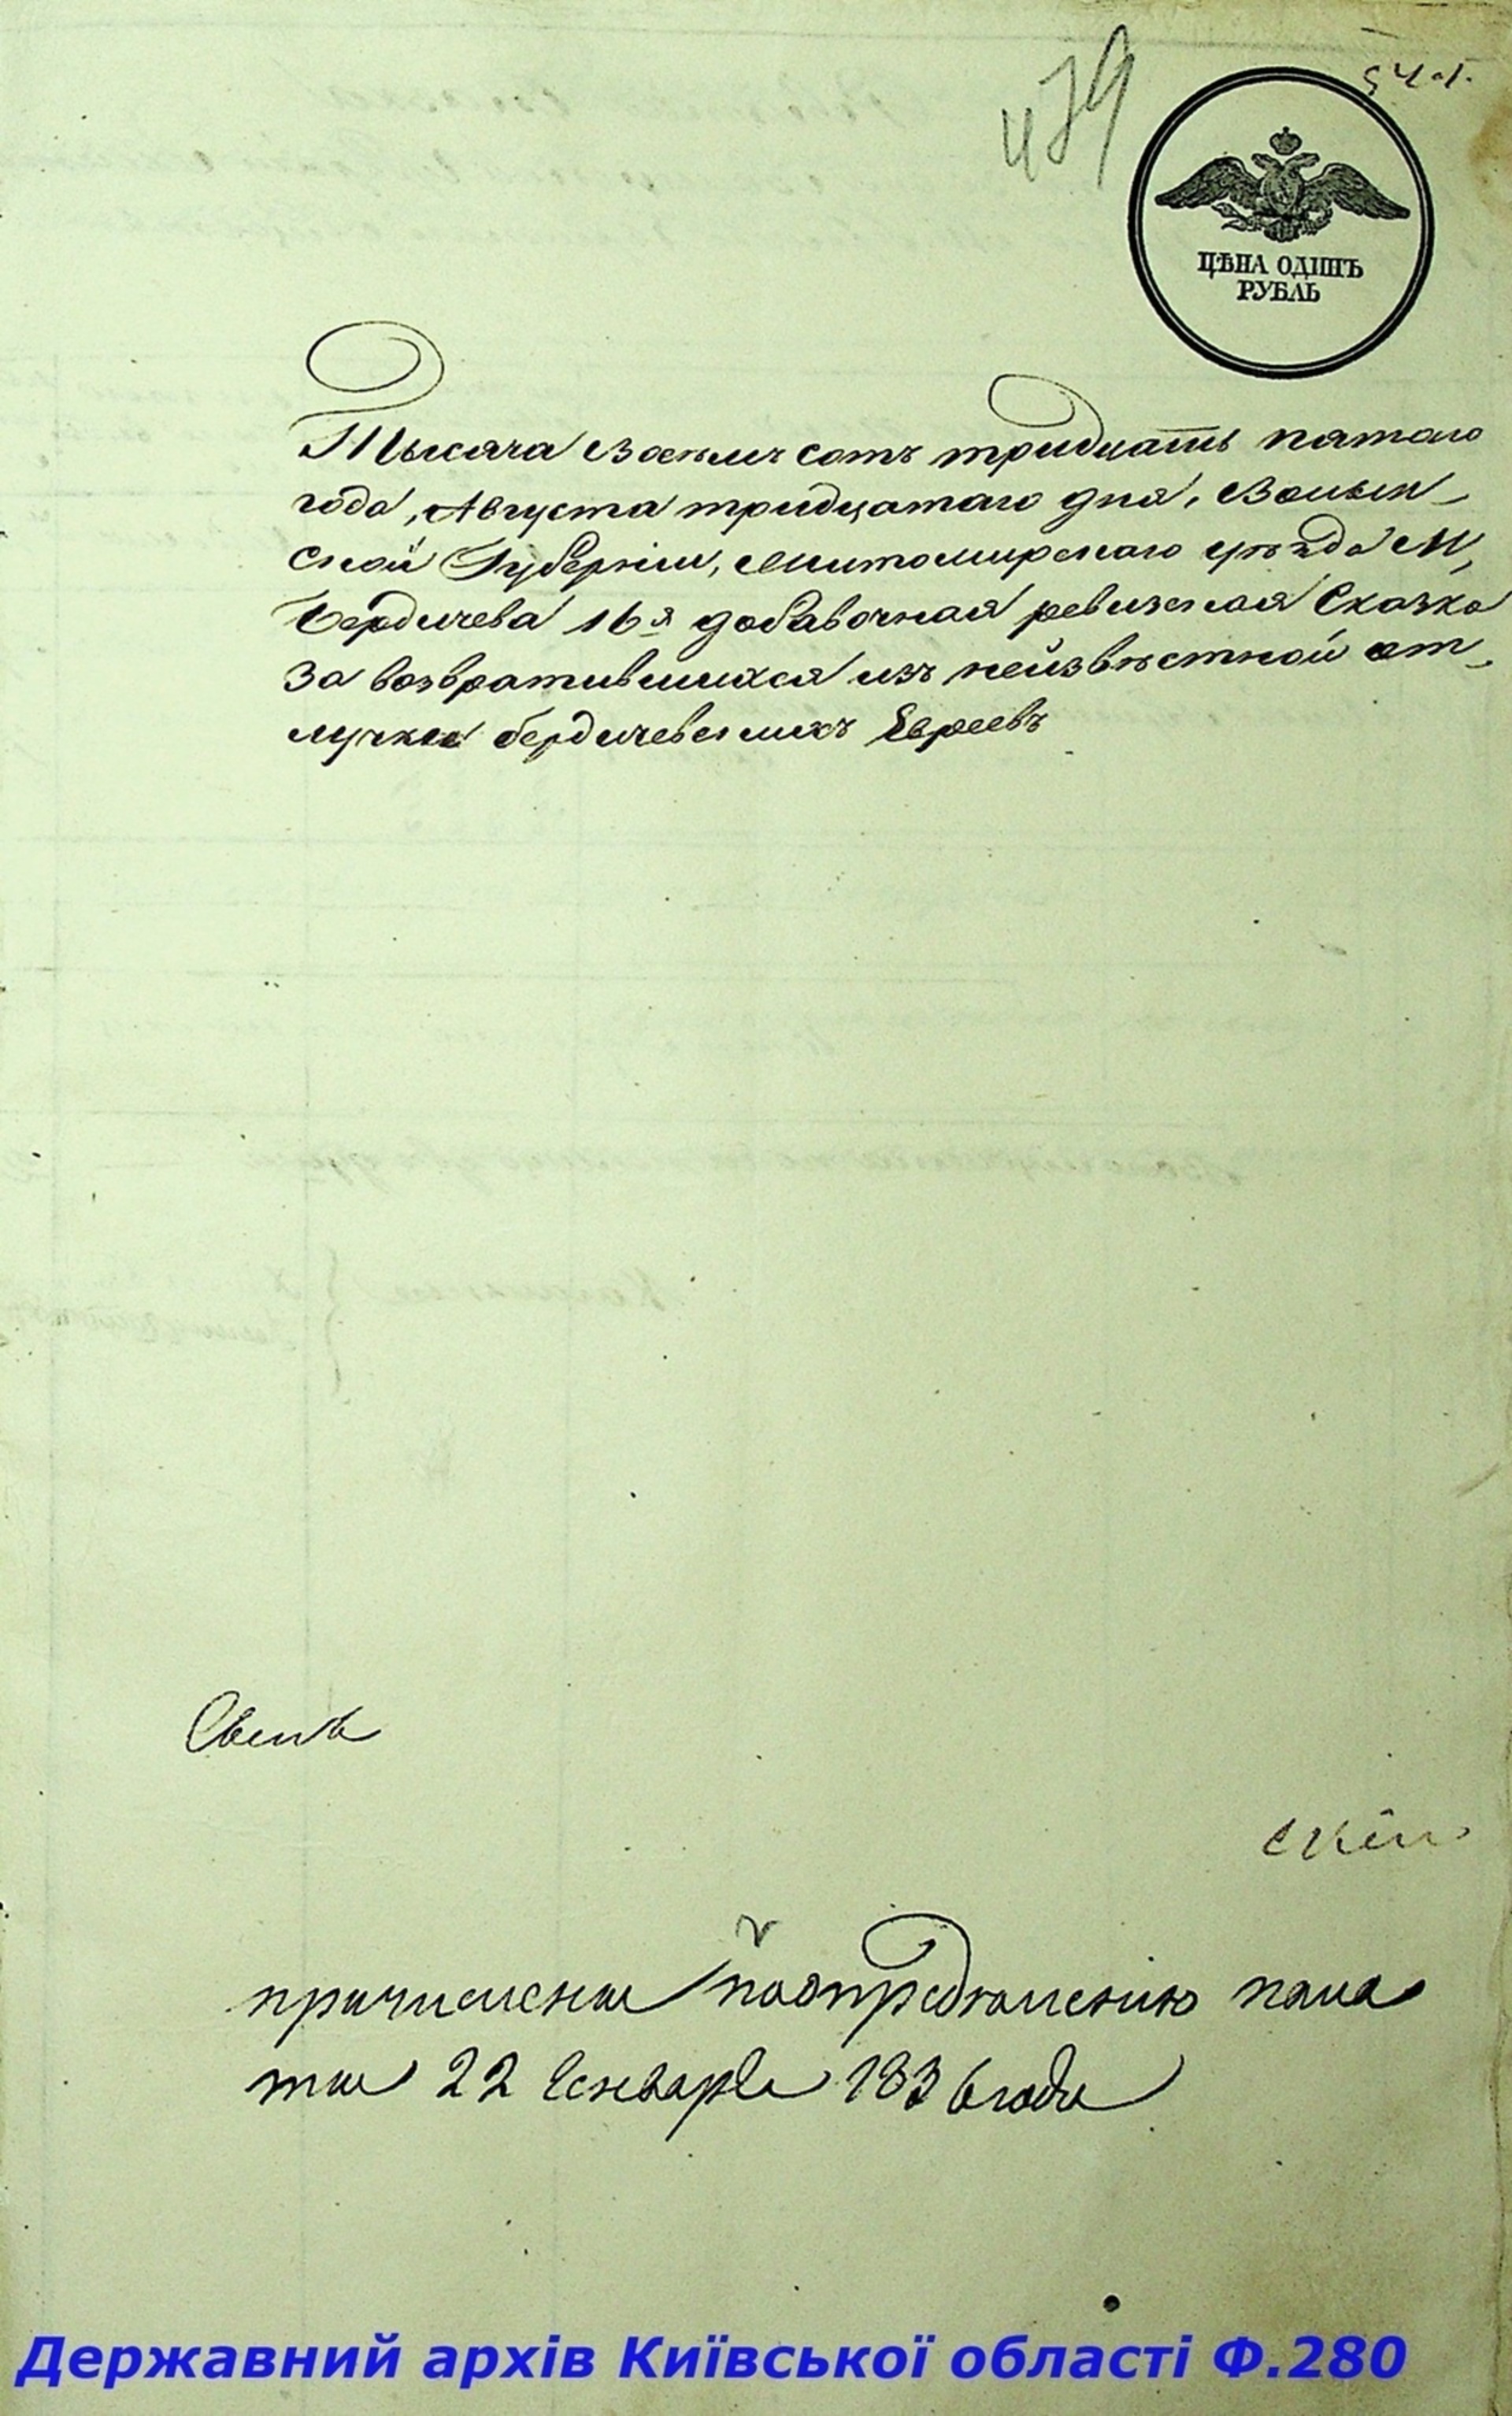 479
ЦѢНА ОДИНЪ
РУБЛЬ
Тысяча восемь сотъ тридцать пятаго
года, Августа тридцатаго дня, Волын-
ской Губерніи, Житомирскаго уѣзда М,
Бердичева 16я добавочная ревизская Сказка
За возвратившихся изъ неизвѣстной от-
лучки бердичевскихъ Евреевъ
причислены по опредѣленію пала
ты 22 Генваря 1836 года
Державний архів Київської області Ф.280